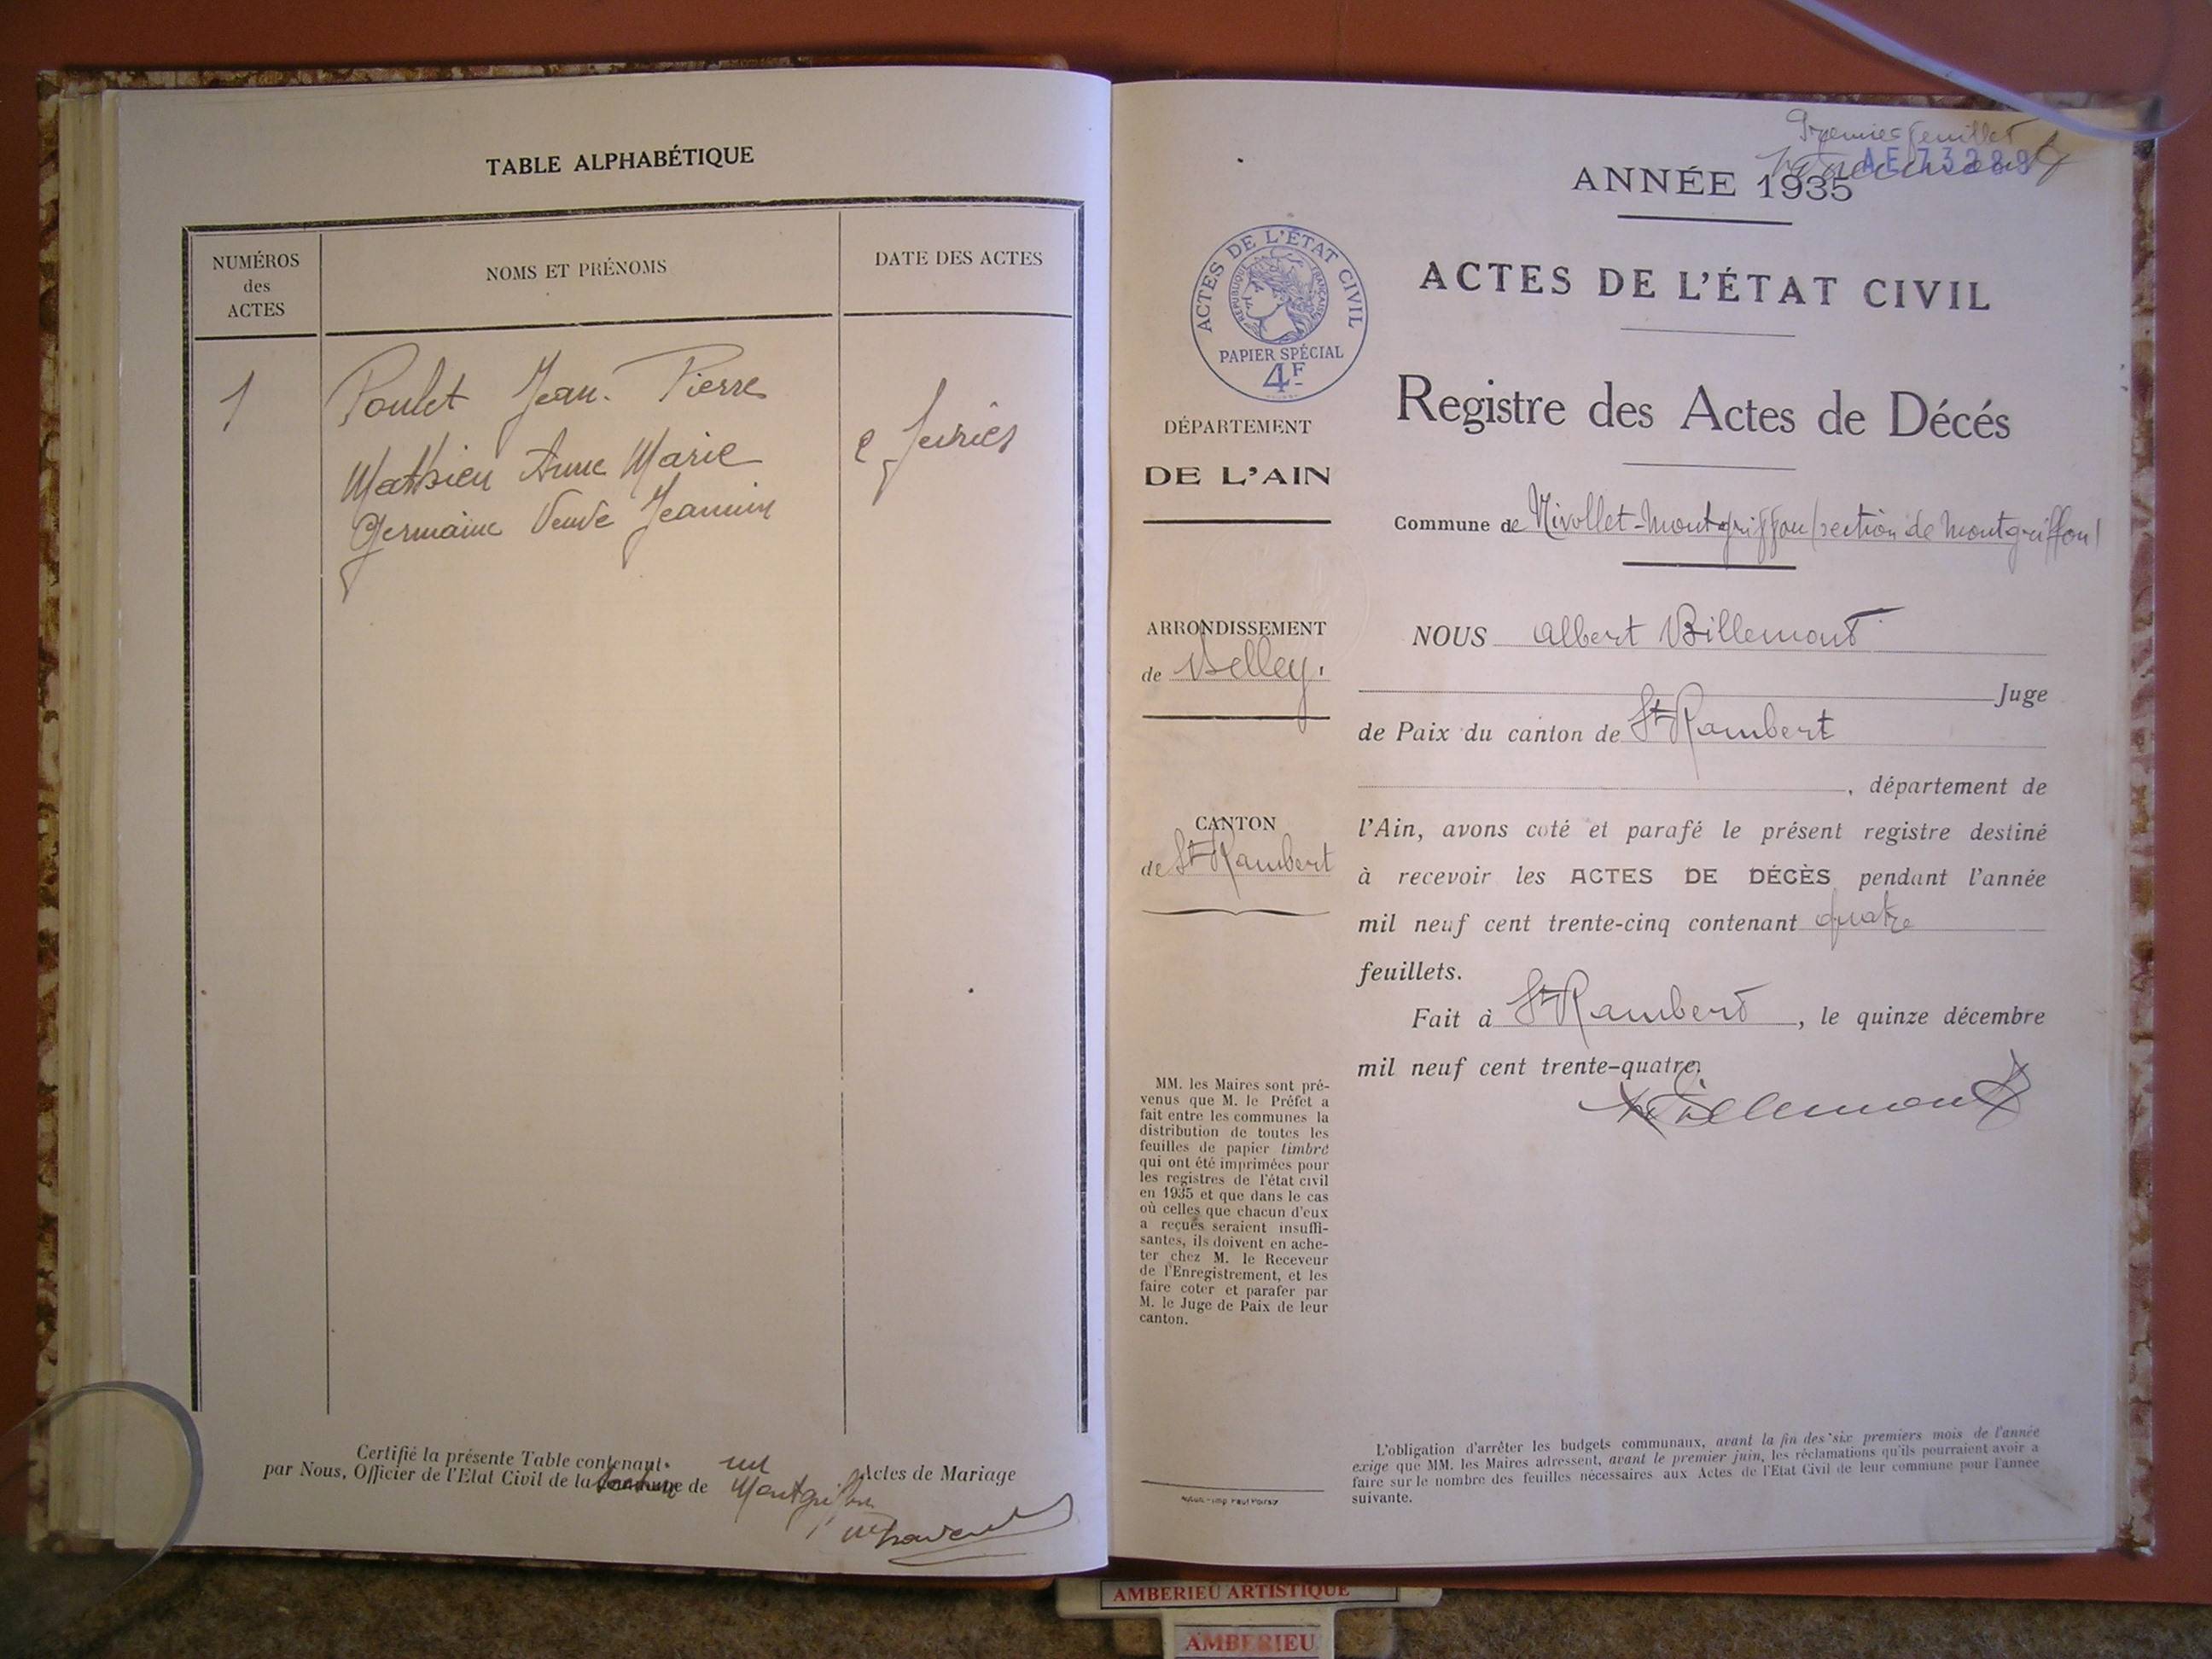 TABLE ALPHABÉTIQUE
NUMÉROS
des
ACTES
NOMS ET PRÉNOMS
DATE DES ACTES
1
Poulet Jean-Pierre
Mathieu Anne Marie
Germaine Veuve Jeannin
2 février
Certifié la présente Table contenant un Actes de Mariage
par Nous, Officier de l'Etat Civil de la section de Montgriffon
Premier feuillet
AE 73289
ANNÉE 1935
ACTES DE L'ÉTAT CIVIL
RÉPUBLIQUE FRANÇAISE
PAPIER SPÉCIAL
4F
ACTES DE L'ÉTAT CIVIL
Registre des Actes de Décés
DÉPARTEMENT
DE L'AIN
Commune de Nivollet-Montgriffon (section de Montgriffon)
ARRONDISSEMENT
de Belley.
CANTON
de St Rambert
NOUS Albert Billemont
Juge
de Paix du canton de St Rambert
, département de
l'Ain, avons coté et parafé le présent registre destiné
à recevoir les ACTES DE DÉCÈS pendant l'année
mil neuf cent trente-cinq contenant quatre
feuillets.
Fait à St Rambert, le quinze décembre
mil neuf cent trente-quatre.
Billemont
MM. les Maires sont pré-
venus que M. le Préfet a
fait entre les communes la
distribution de toutes les
feuilles de papier timbré
qui ont été imprimées pour
les registres de l'état civil
en 1935 et que dans le cas
où celles que chacun d'eux
a reçues seraient insuffi-
santes, ils doivent en ache-
ter chez M. le Receveur
de l'Enregistrement, et les
faire coter et parafer par
M. le Juge de Paix de leur
canton.
L'obligation d'arrêter les budgets communaux, avant la fin des six premiers mois de l'année
exige que MM. les Maires adressent, avant le premier juin, les réclamations qu'ils pourraient avoir a
faire sur le nombre des feuilles nécessaires aux Actes de l'Etat Civil de leur commune pour l'année
suivante.
AMBERIEU ARTISTIQUE
AMBERIEU